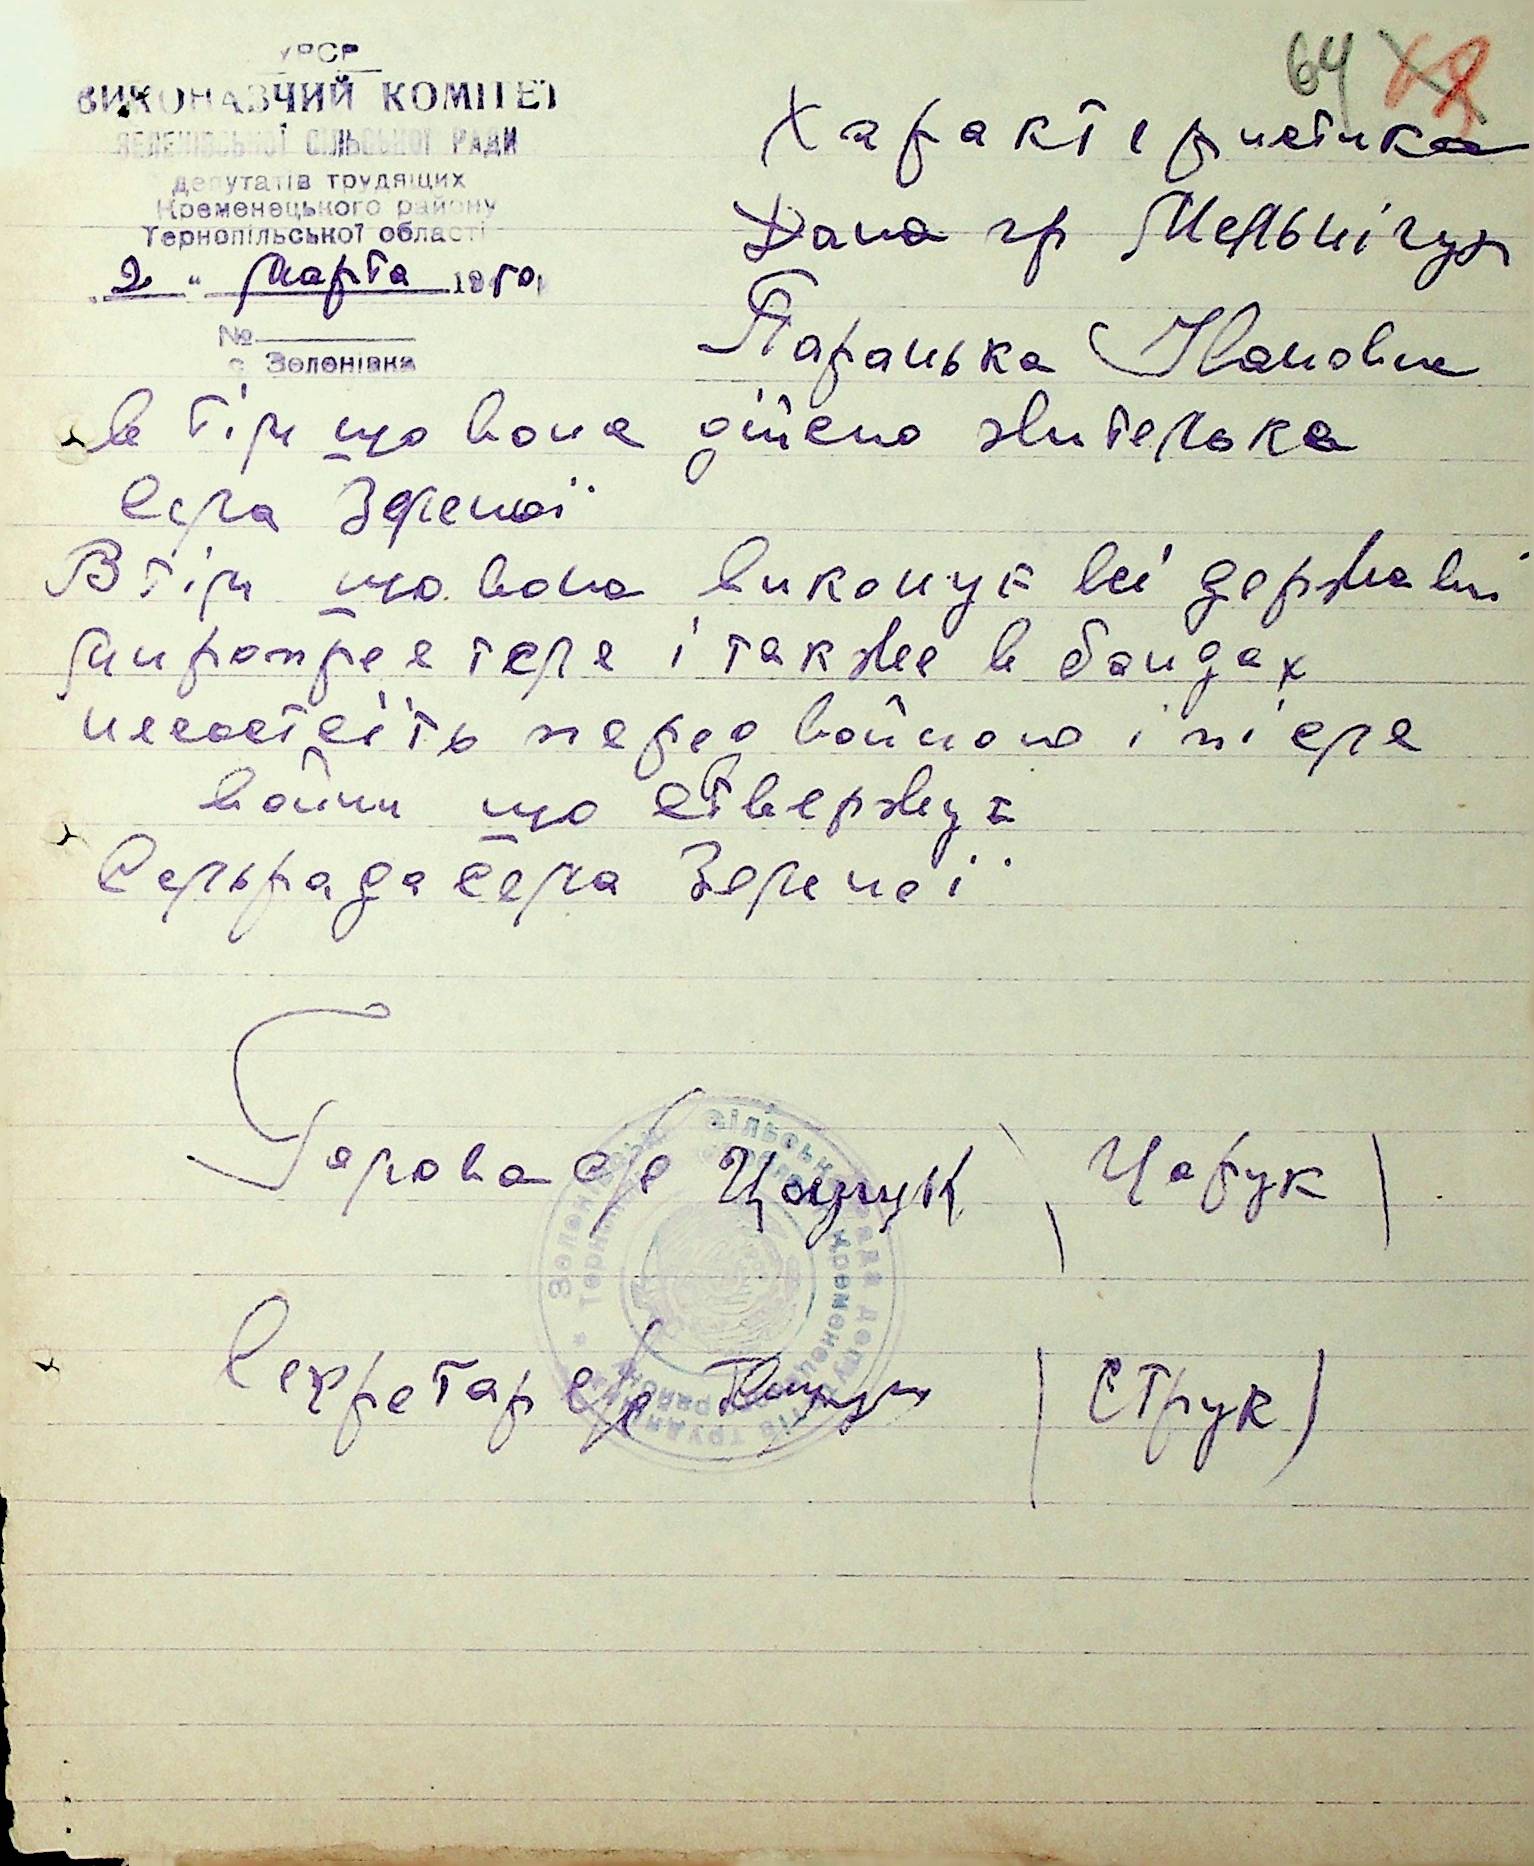 64
УРСР
ВИКОНАВЧИЙ КОМІТЕТ
ЗЕЛЕНІВСЬКОЇ СІЛЬСЬКОЇ РАДИ
депутатів трудящих
Кременецького району
Тернопільської області
"2" Марта 1950
№
с Зеленівка
Характеристика
Дана гр Мельнічук
Паранька Івановна
в тім що вона дійсно жителька
села Зеленої
В тім що вона виконує всі державні
миропреєтеля і также в бандах
несостоїть перед войною і після
войни що ствержує
Сельрада села Зеленої
Голова с/р Цапук (Цапук)
Секретар с/р (Струк)
Зеленівська сільська рада депутатів трудящих
Кременецького району